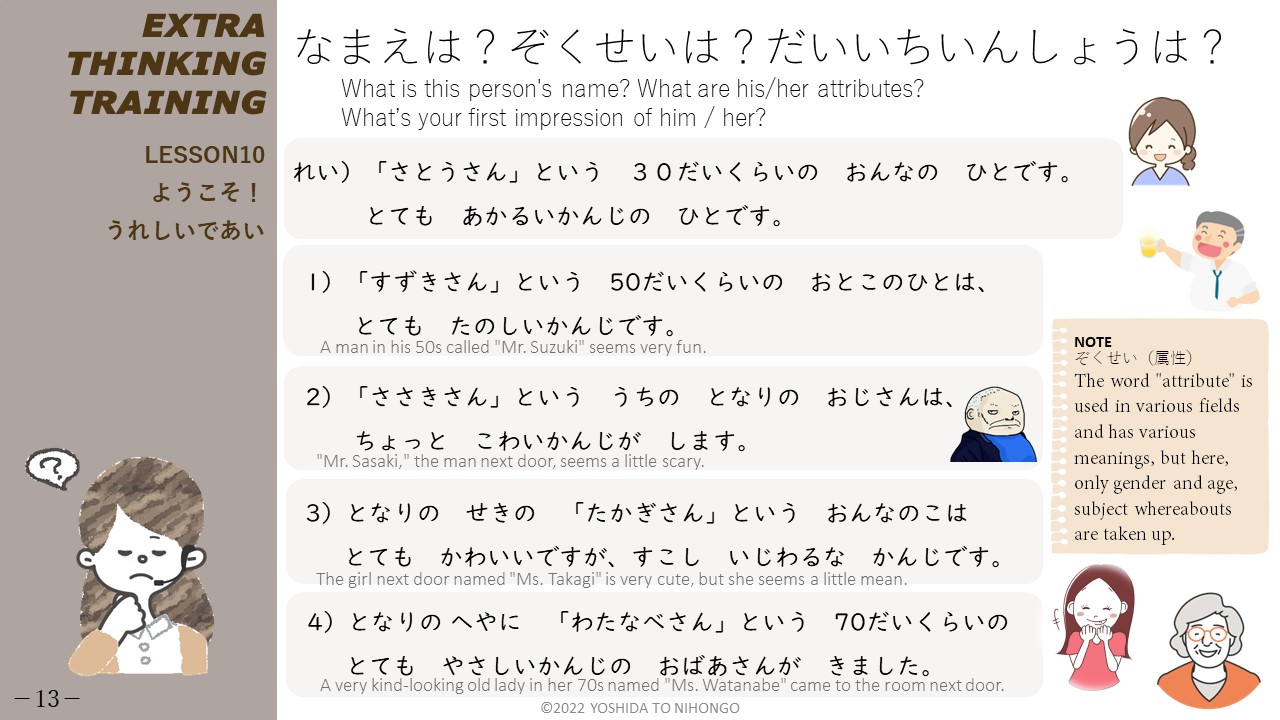 EXTRA
THINKING
TRAINING
LESSON10
ようこそ！
うれしいであい
－13－
なまえは？ぞくせいは？だいいちいんしょうは？
What is this person's name? What are his/her attributes?
What's your first impression of him / her?
れい）「さとうさん」という　３０だいくらいの　おんなの　ひとです。
とても　あかるいかんじの　ひとです。
1）「すずきさん」という　50だいくらいの　おとこのひとは、
とても　たのしいかんじです。
A man in his 50s called "Mr. Suzuki" seems very fun.
2）「ささきさん」という　うちの　となりの　おじさんは、
ちょっと　こわいかんじが　します。
"Mr. Sasaki," the man next door, seems a little scary.
3）となりの　せきの　「たかぎさん」という　おんなのこは
とても　かわいいですが、すこし　いじわるな　かんじです。
The girl next door named "Ms. Takagi" is very cute, but she seems a little mean.
4）となりの へやに　「わたなべさん」という　70だいくらいの
とても　やさしいかんじの　おばあさんが　きました。
A very kind-looking old lady in her 70s named "Ms. Watanabe" came to the room next door.
NOTE
ぞくせい（属性）
The word "attribute" is
used in various fields
and has various
meanings, but here,
only gender and age,
subject whereabouts
are taken up.
©2022 YOSHIDA TO NIHONGO